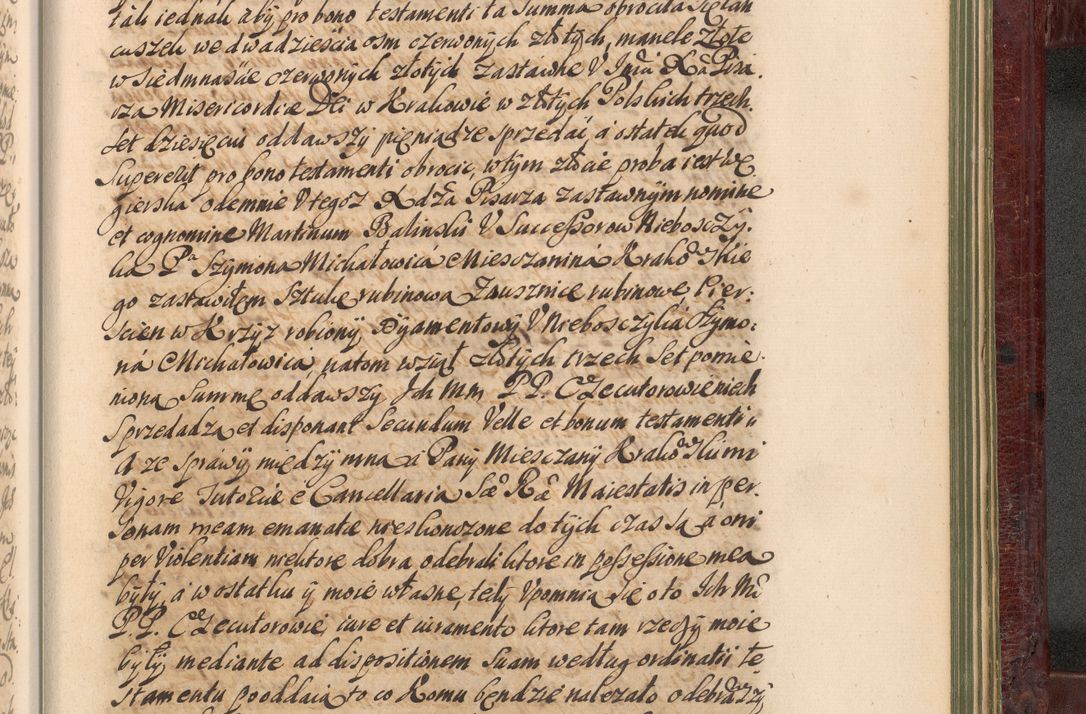 tali iednak aby pro bono testamenti ta Summa obrociła się łan
cuszek we dwadziescia osm czerwonych złotych, manele złote
w siedmnascie czerwonych złotych zastawne V Jmci Xa Pisa
rza Misericordiæ Dei w Krakowie w złotych Polskich trzech
set dziesięciu oddawszy pieniądze sprzedać, a ostatek quod
Supererit pro bono testamenti obrocic, w tym złocie proba iest wę
gierska odemnie V tegoz Xdza Pisarza zastawnym nomine
et cognomine Martinum Balinski V Successorow Niebosczy
ka Pa Szymona Michałowica Miesczanina Krakoskie
go zastawiłem Sztukę rubinową Zausznice rubinowe Pier
scien w Krzyz robiony Dyamentowy V Niebosczyka Szymo:
ná Michałowica, na tom wziął złotych trzech set pomie
niona Summę oddawszy Ich Mm PP. Exequutorowie niech
sprzedadzą et disponant Secundum Velle et bonum testamenti
A ze sprawy między mną a Pany Miesczany Krakoskiemi
Vigore Tutoriæ e Cancellaria Sae Rae Maiestatis in per
sonam meam emanatæ nieskonczone do tych czas są, a oni
per Violentiam niektore dobra odebrali ktore in possessione mea
były, a w ostatku y moie własne, tedy Vpomnią się o to Ich Mci
P.P. Exequutorowie, iure et iuramento ktore tam rzeczy moie
były mediante ad dispositionem Suam według ordinatii te
stamentu pooddaią to co komu bendzie nalezało odebrawszy